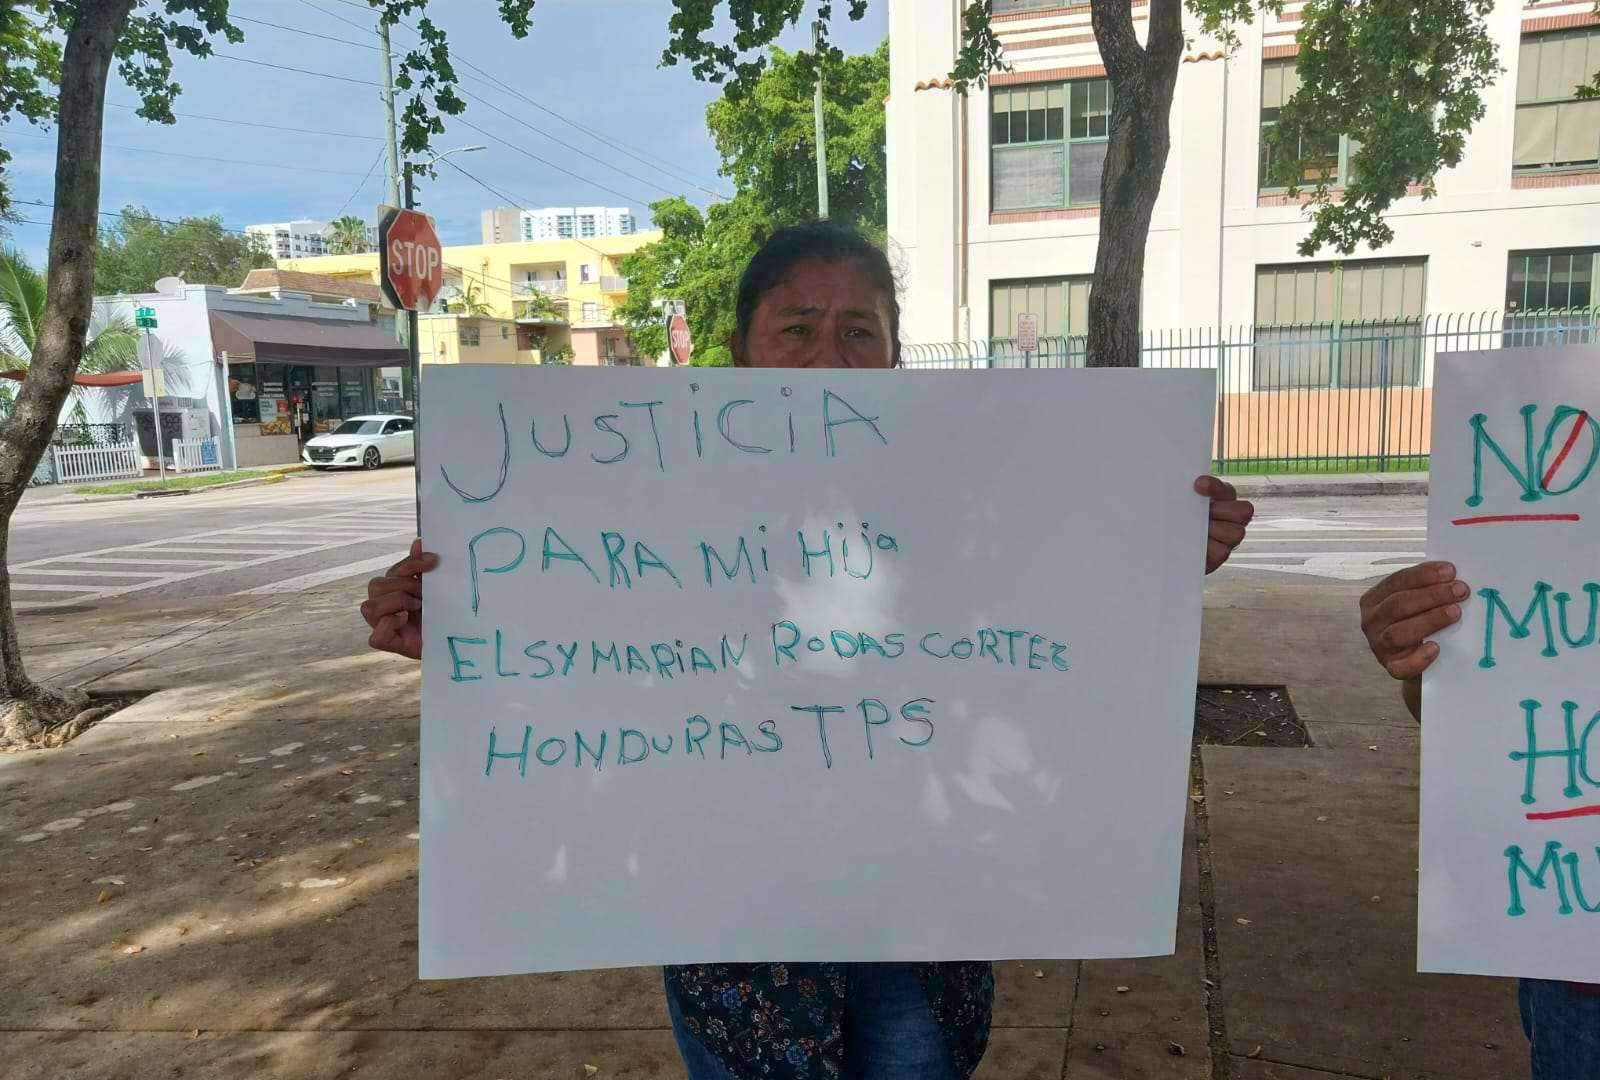 STOP
STOP
JUSTICIA
PARA Mi Hija
ELSY MARIAN RODAS CORTEZ
HONDURAS TPS
NO